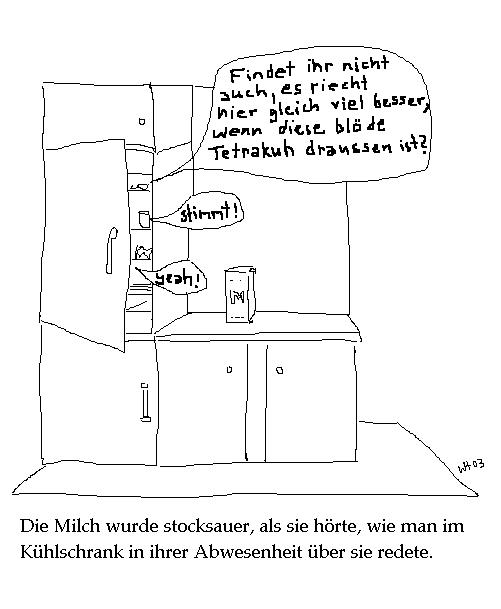 Findet ihr nicht
auch, es riecht
hier gleich viel besser,
wenn diese blöde
Tetrakuh draussen ist?
stimmt!
yeah!
M
WH03
Die Milch wurde stocksauer, als sie hörte, wie man im
Kühlschrank in ihrer Abwesenheit über sie redete.